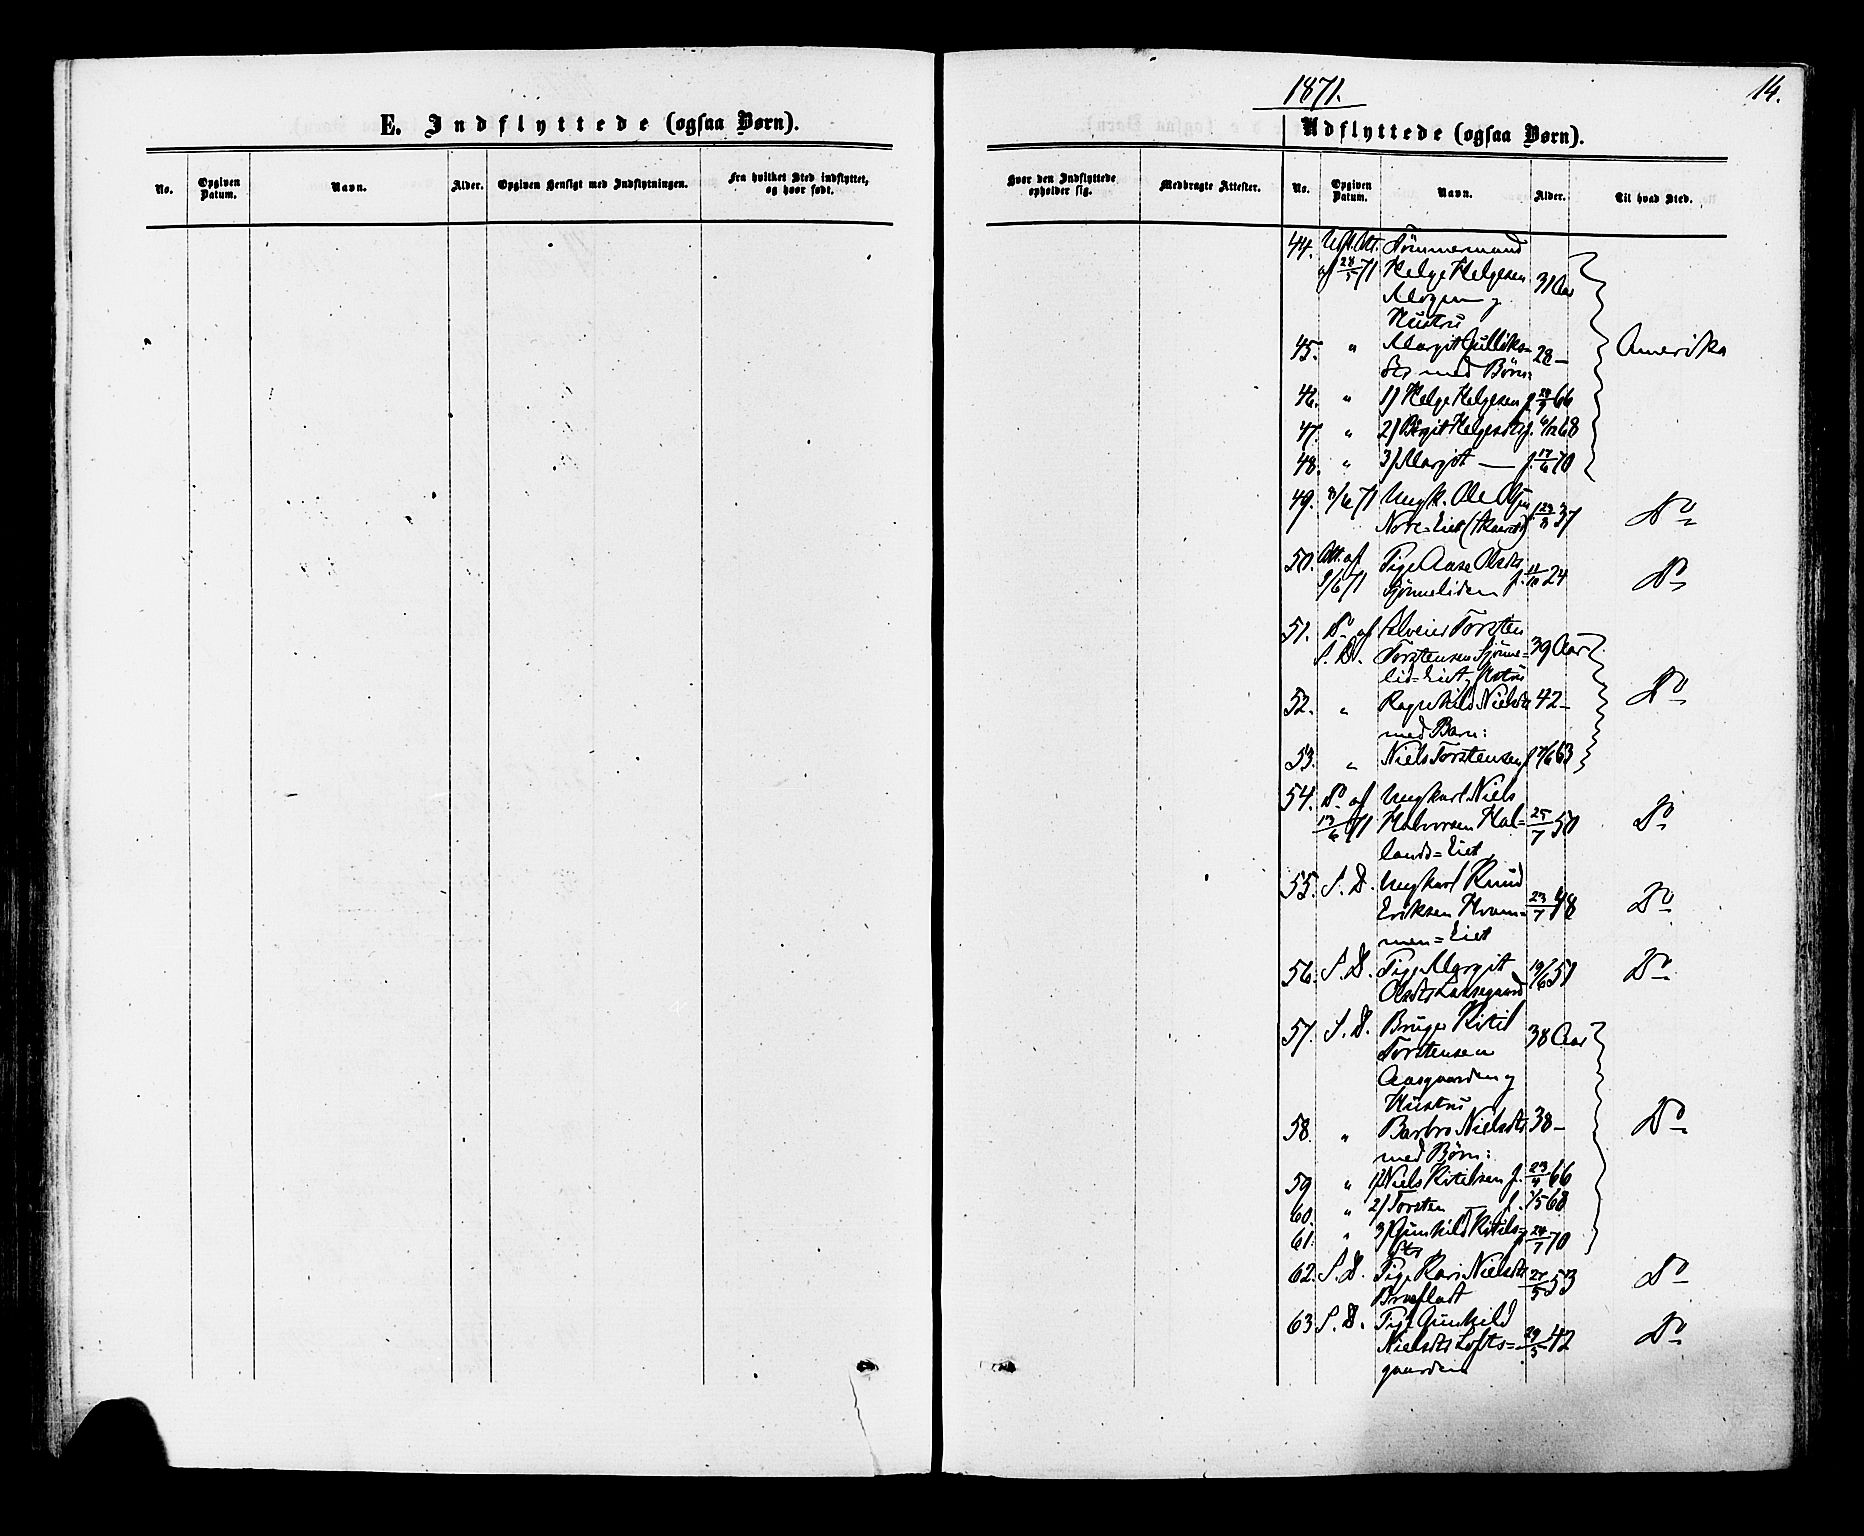 1871.
14.
E. Indflyttede (ogsaa Børn).
Udflyttede (ogsaa Børn).
No. Opgiven Datum. Navn. Alder. Opgiven Hensigt med Indflytningen. Fra hvilket Sted indflyttet, og hvor født.
Hvor den Indflyttede opholder sig. Medbragte Attester. No. Opgiven Datum. Navn. Alder. Til hvad Sted.
44. Udfl. Att. Tømmermand
af 28/5 71 Helge Helgesen 31 Aar
Mogen og
Hustru
45. " Margit Gulliks= 28 – Amerika
dtr med Børn:
46. " 1) Helge Helgesen f. 66
47. " 2) Birgit Helgesdtr f. 4/12 68
48. " 3) Margit — f. 17/6 70
49. 8/6 71 Ungk. Ole Olsen
Nore=Eiet f. 37 Do
50. Att. af Pige Aase Olsdtr
9/6 71 Sjønneliden f. 11/10 24 Do
51. Do af Torsten
S. D. Torstensen Sjønne= 39 Aar
lid=Eiet, Hstru
52. " Ragnhild Nielsdtr 42 – Do
med Barn:
53. " Niels Torstensen f. 63
54. Do af Ungkarl Niels
13/6 71 Halvorsen Hal= 25/7 50 Do
lands=Eiet
55. S. D. Ungkarl Knud
Eriksen Hvam= 23/7 48 Do
men=Eiet
56. S. D. Pige Margit 19/6 51 Do
Olsdtr Laasegaard
57. S. D. Bruger Kitil 38 Aar
Torstensen
Aasgaarden og
Hustru
58. " Barbro Nielsdtr 38 – Do
med Børn:
59 " 1) Niels Kitilsen f. 23/4 66
60. " 2) Torsten — f. 1/5 68
61. " 3) Gunhild Kitils= 24/7 70
dtr
62. S. D. Pige Kari Nielsdtr 27/5 53 Do
Brufladt
63 S. D. Pige Gunhild
Nielsdtr Lofts= 29/5 42 Do
gaarden